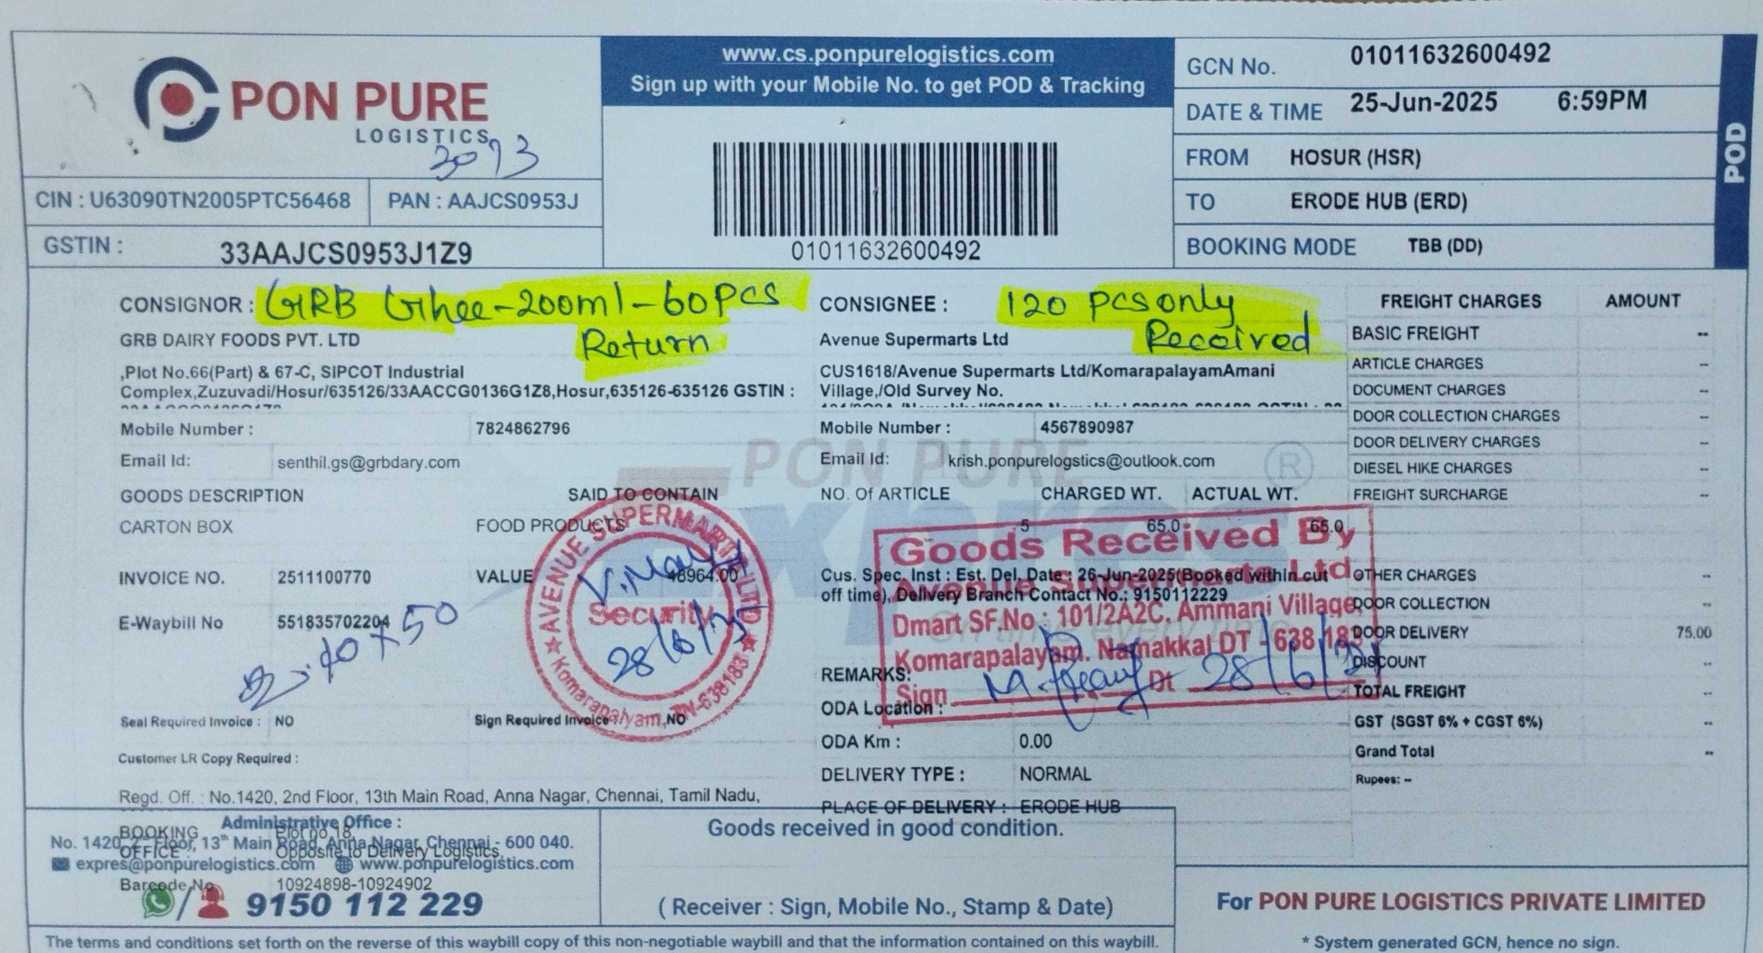 PON PURE
LOGISTICS
3073
www.cs.ponpurelogistics.com
Sign up with your Mobile No. to get POD & Tracking
01011632600492
GCN No. 01011632600492
DATE & TIME 25-Jun-2025 6:59PM
FROM HOSUR (HSR)
TO ERODE HUB (ERD)
BOOKING MODE TBB (DD)
POD
CIN : U63090TN2005PTC56468 PAN : AAJCS0953J
GSTIN : 33AAJCS0953J1Z9
CONSIGNOR : GRB Ghee-200ml-60pcs
Return
GRB DAIRY FOODS PVT. LTD
,Plot No.66(Part) & 67-C, SIPCOT Industrial
Complex,Zuzuvadi/Hosur/635126/33AACCG0136G1Z8,Hosur,635126-635126 GSTIN :
Mobile Number : 7824862796
Email Id: senthil.gs@grbdary.com
CONSIGNEE : 120 pcs only
Received
Avenue Supermarts Ltd
CUS1618/Avenue Supermarts Ltd/KomarapalayamAmani
Village,/Old Survey No.
Mobile Number : 4567890987
Email Id: krish.ponpurelogstics@outlook.com
PON PURE ®
GOODS DESCRIPTION SAID TO CONTAIN NO. Of ARTICLE CHARGED WT. ACTUAL WT.
CARTON BOX FOOD PRODUCTS 5 65.0 65.0
INVOICE NO. 2511100770 VALUE 48964.00
E-Waybill No 551835702204
Cus. Spec. Inst : Est. Del. Date : 26-Jun-2025(Booked within cut
off time), Delivery Branch Contact No.: 9150112229
REMARKS:
ODA Location :
ODA Km : 0.00
DELIVERY TYPE : NORMAL
PLACE OF DELIVERY : ERODE HUB
Seal Required Invoice : NO Sign Required Invoice NO
Customer LR Copy Required :
Regd. Off. : No.1420, 2nd Floor, 13th Main Road, Anna Nagar, Chennai, Tamil Nadu,
AVENUE SUPERMARTS LTD
Security
28/6/25
Komarapalyam, TN-638183
Goods Received By
Avenue Supermarts Ltd
Dmart SF.No : 101/2A2C, Ammani Village,
Komarapalayam. Namakkal DT - 638 183
Sign Dt 28/6/25
FREIGHT CHARGES AMOUNT
BASIC FREIGHT --
ARTICLE CHARGES --
DOCUMENT CHARGES --
DOOR COLLECTION CHARGES --
DOOR DELIVERY CHARGES --
DIESEL HIKE CHARGES --
FREIGHT SURCHARGE --
OTHER CHARGES --
DOOR COLLECTION --
DOOR DELIVERY 75.00
DISCOUNT --
TOTAL FREIGHT --
GST (SGST 6% + CGST 6%) --
Grand Total --
Rupees: --
Administrative Office :
No. 1420, 2nd Floor, 13th Main Road, Anna Nagar, Chennai - 600 040.
expres@ponpurelogistics.com www.ponpurelogistics.com
BOOKING OFFICE : Plot no 18
Opposite to Delivery Logistics,
Barcode No 10924898-10924902
9150 112 229
Goods received in good condition.
( Receiver : Sign, Mobile No., Stamp & Date)
For PON PURE LOGISTICS PRIVATE LIMITED
The terms and conditions set forth on the reverse of this waybill copy of this non-negotiable waybill and that the information contained on this waybill.
* System generated GCN, hence no sign.